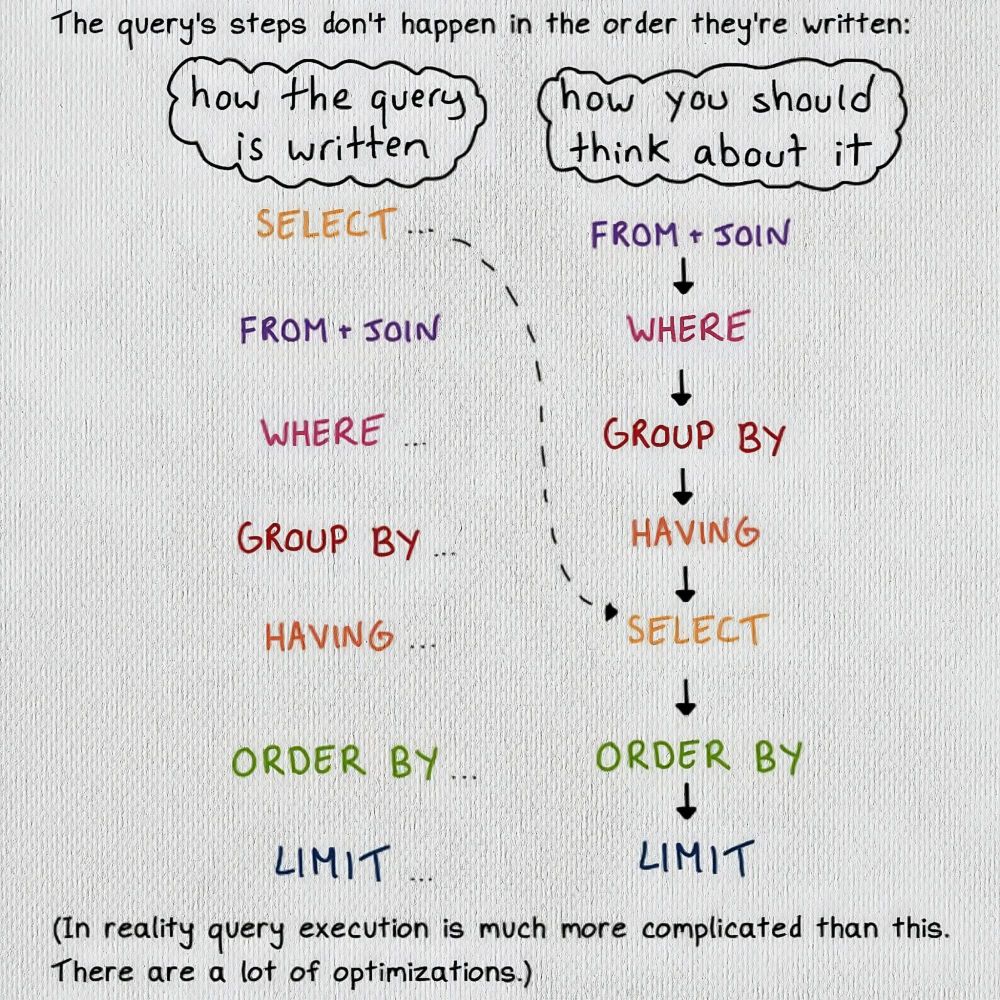 The query's steps don't happen in the order they're written:
how the query
is written
how you should
think about it
SELECT ...
FROM + JOIN
WHERE ...
GROUP BY ...
HAVING ...
ORDER BY ...
LIMIT ...
FROM + JOIN
WHERE
GROUP BY
HAVING
SELECT
ORDER BY
LIMIT
(In reality query execution is much more complicated than this.
There are a lot of optimizations.)